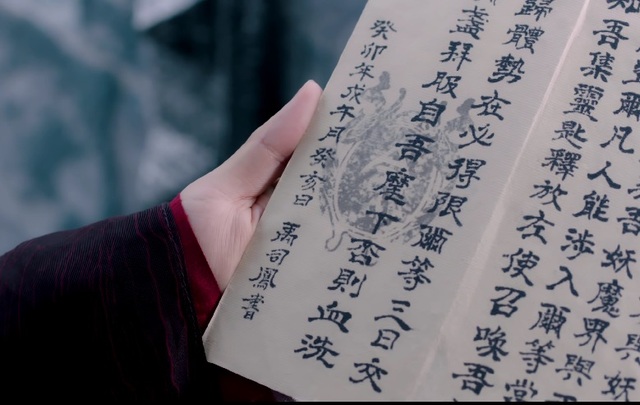 吾妖魔界與
爾凡人能涉入爾等當
吾集靈匙釋放左使召喚吾
歸體勢在必得限爾等三日交
拜服自吾麾下否則血洗
癸卯年戊午月癸亥日 蕭司鳳書